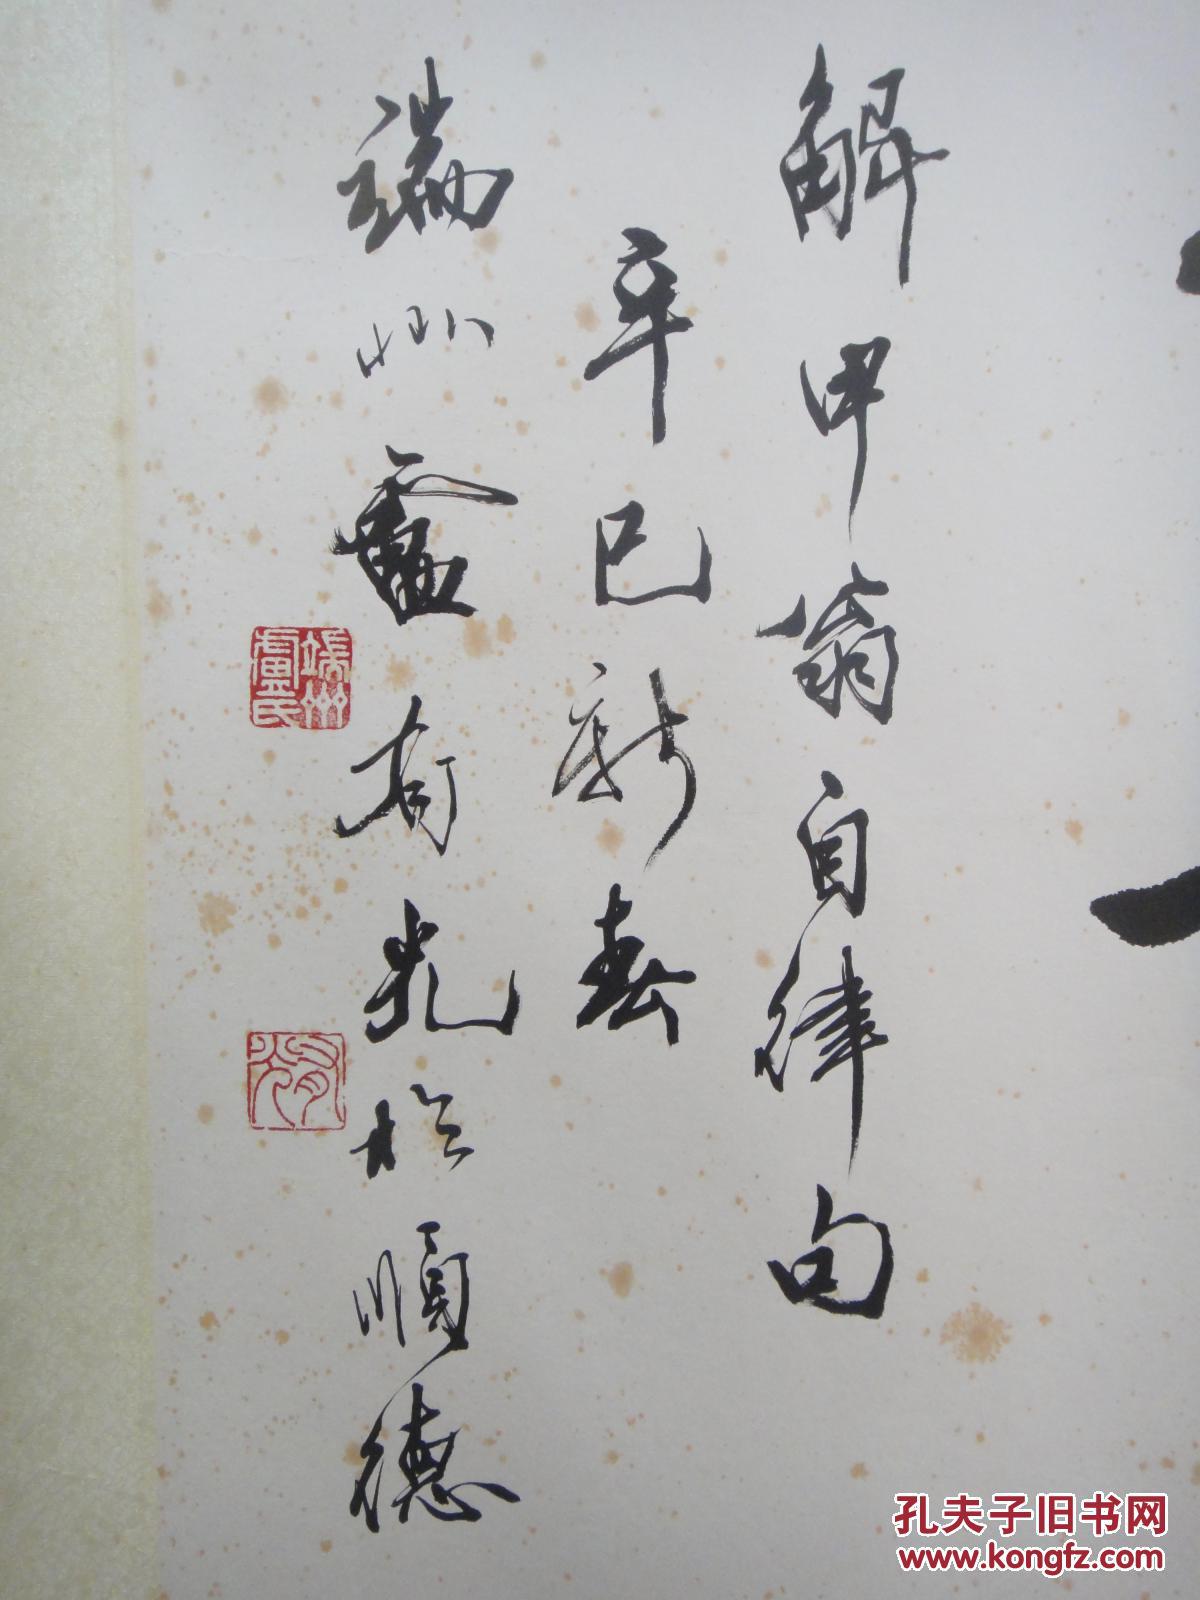 解甲翁自律句
辛巳新春
端州盧有光於順德
端州盧氏
有光
孔夫子旧书网
www.kongfz.com